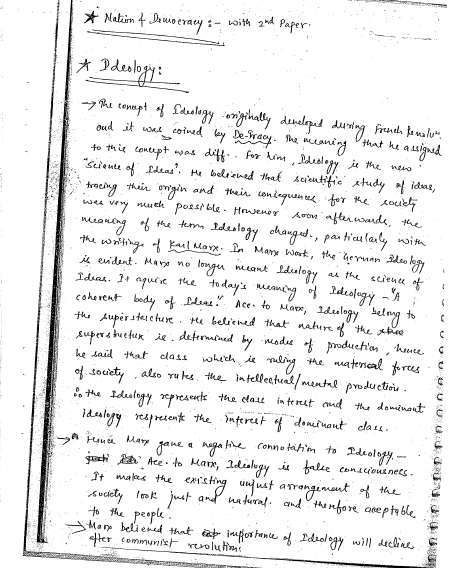 ★ Nation & Democracy :- with 2nd Paper.
★ Ideology :
→ The concept of Ideology originally developed during French Revolun.
and it was coined by De-Tracy. The meaning that he assigned
to this concept was diff.. For him, Ideology is the new
"Science of Ideas". He believed that scientific study of ideas,
tracing their origin and their consequences for the society
was very much possible. However soon afterwards, the
meaning of the term Ideology changed, particularly with
the writings of Karl Marx. In Marx work, the German Ideology
is evident. Marx no longer meant Ideology as the science of
Ideas. It aquire the today's meaning of Ideology - "A
coherent body of Ideas". Acc. to Marx, Ideology belong to
the superstructure. He believed that nature of the
superstructure is determined by modes of production, hence
he said that class which is ruling the material forces
of society, also rules the intellectual/mental production.
∴ the Ideology represents the class interest and the dominant
Ideology respresents the interest of dominant class.
→ Hence Marx gave a negative connotation to Ideology. -
Acc. to Marx, Ideology is false consciousness.
It makes the existing unjust arrangement of the
society look just and natural. and therefore acceptable
to the people.
→ Marx believed that importance of Ideology will decline
after communist revolution.